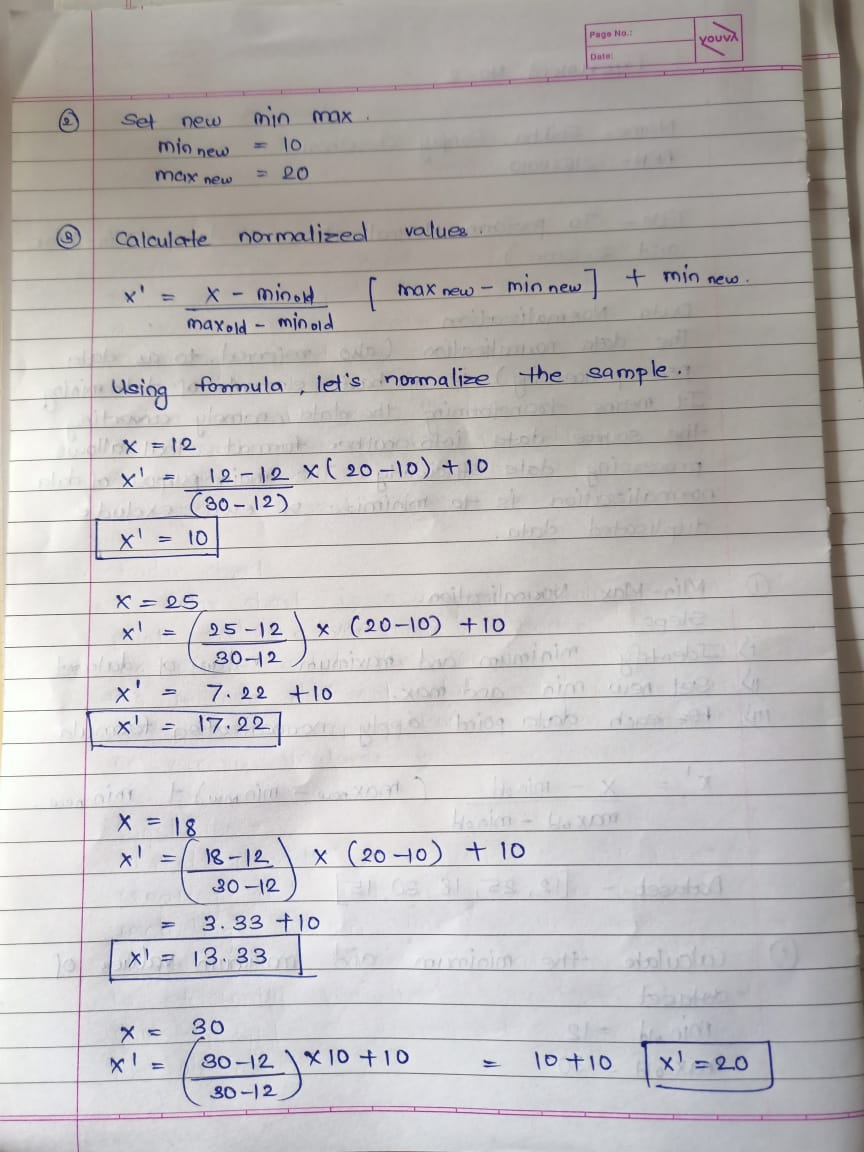 Page No.:
Date:
YOUVA
② Set new min max.
min new = 10
max new = 20
③ Calculate normalized values.
x' = x - min old / max old - min old [max new - min new] + min new.
Using formula, let's normalize the sample.
x = 12
x' = 12-12 / (30-12) x (20-10) + 10
x' = 10
x = 25
x' = (25-12 / 30-12) x (20-10) +10
x' = 7.22 +10
x' = 17.22
x = 18
x' = (18-12 / 30-12) x (20-10) + 10
= 3.33 +10
x' = 13.33
x = 30
x' = (30-12 / 30-12) x 10 + 10 = 10+10 x' = 20